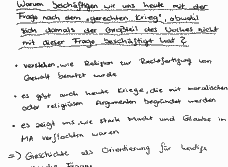 Warum beschäftigen wir uns heute mit der
Frage nach dem „gerechten Krieg", obwohl
sich damals der Großteil des Volkes nicht
mit dieser Frage beschäftigt hat?
• verstehen, wie Religion zur Rechtfertigung von
Gewalt benutzt wurde
• es gibt auch heute Kriege, die mit moralischen
oder religiösen Argumenten begründet werden
• es zeigt uns, wie stark Macht und Glaube im
MA verflochten waren
=> Geschichte als Orientierung für heutige